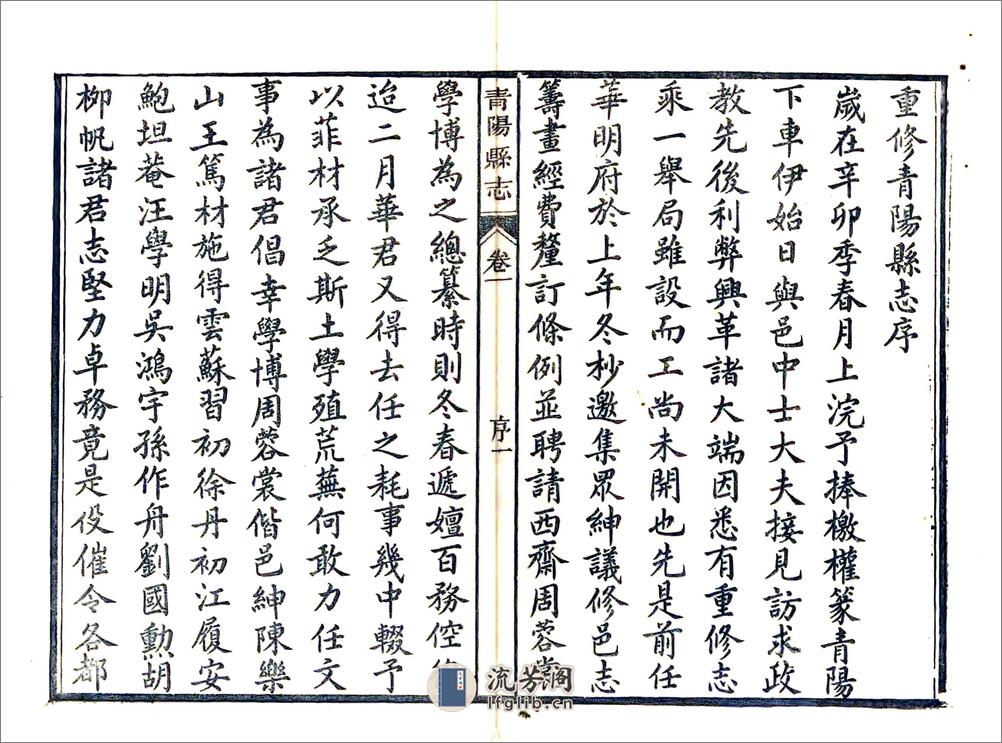 重修青陽縣志序
歲在辛卯季春月上浣予捧檄權篆青陽
下車伊始日與邑中士大夫接見訪求政
教先後利弊興革諸大端因悉有重修志
乘一舉局雖設而工尚未開也先是前任
華明府於上年冬杪邀集眾紳議修邑志
籌畫經費釐訂條例並聘請西齋周蓉裳
青陽縣志
卷一
序一
學博為之總纂時則冬春遞嬗百務倥
迨二月華君又得去任之耗事幾中輟予
以菲材承乏斯土學殖荒蕪何敢力任文
事為諸君倡幸學博周蓉裳偕邑紳陳樂
山王篤材施得雲蘇習初徐丹初江履安
鮑坦菴汪學明吳鴻宇孫作舟劉國勳胡
柳帆諸君志堅力卓務竟是役催令各都
流芳阁
lfglib.cn